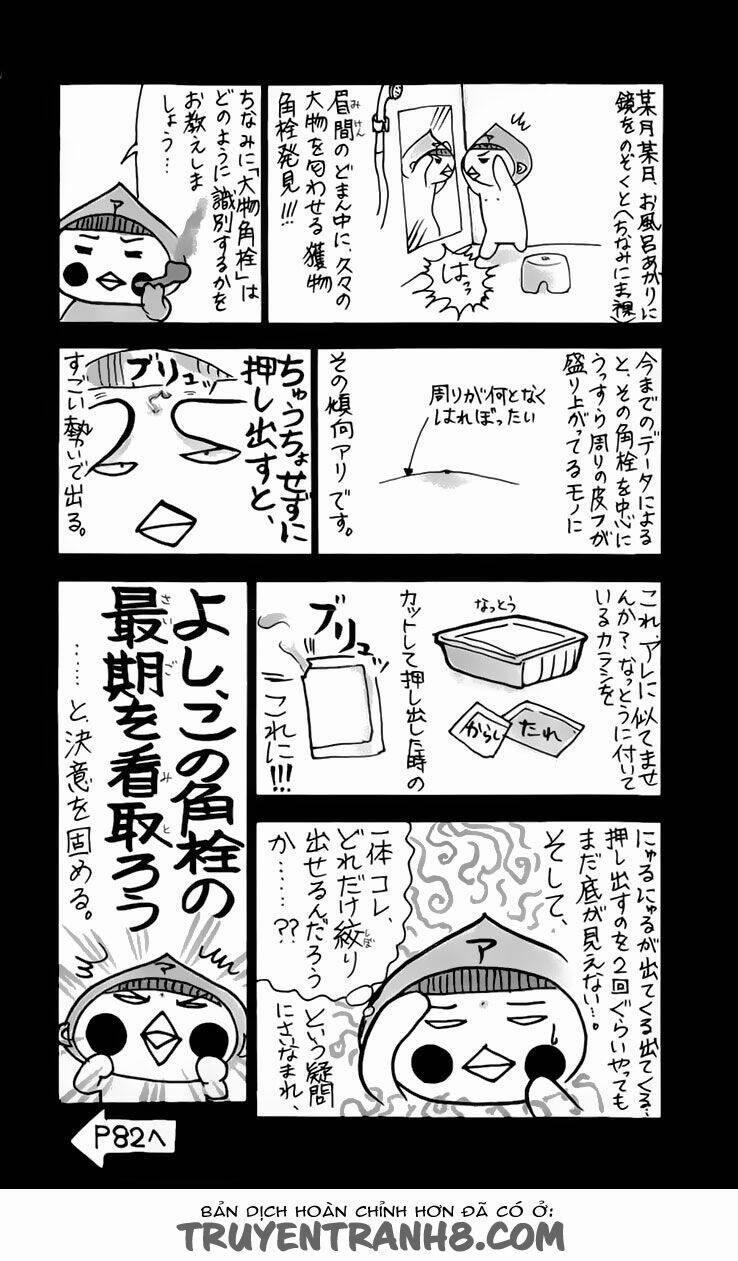 某月某日、お風呂あがりに
鏡をのぞくと(ちなみに
眉間のどまん中に、久々の
みけん
大物を匂わせる獲物
角栓発見!!!
はっ
ちなみに「大物角栓」は
どのように識別するかを
お教えしま
しょう…
ア
今までのデータによる
と、その角栓を中心に
うっすら周りの皮フが
盛り上がってるモノに
周りが何となく
はれぼったい
その傾向アリです。
ちゅうちょせずに
押し出すと、
ブリュッ
すごい勢いで出る。
これ、アレに似てませ
んか?なっとうに付いて
いるカラシを
なっとう
からし
たれ
カットして押し出した時の
ブリュッ
これに!!!
にゅるにゅるが出てくる出てくる…
押し出すのを2回ぐらいやっても
まだ底が見えない…。
そして、
一体コレ、
どれだけ絞り
しぼ
出せるんだろう
か……??
ア
という疑問
にさいなまれ、
よし、この角栓の
最期を看取ろう
さいごみと
……と、決意を固める。
ア
P82へ
BẢN DỊCH HOÀN CHỈNH HƠN ĐÃ CÓ Ở:
TRUYENTRANH8.COM